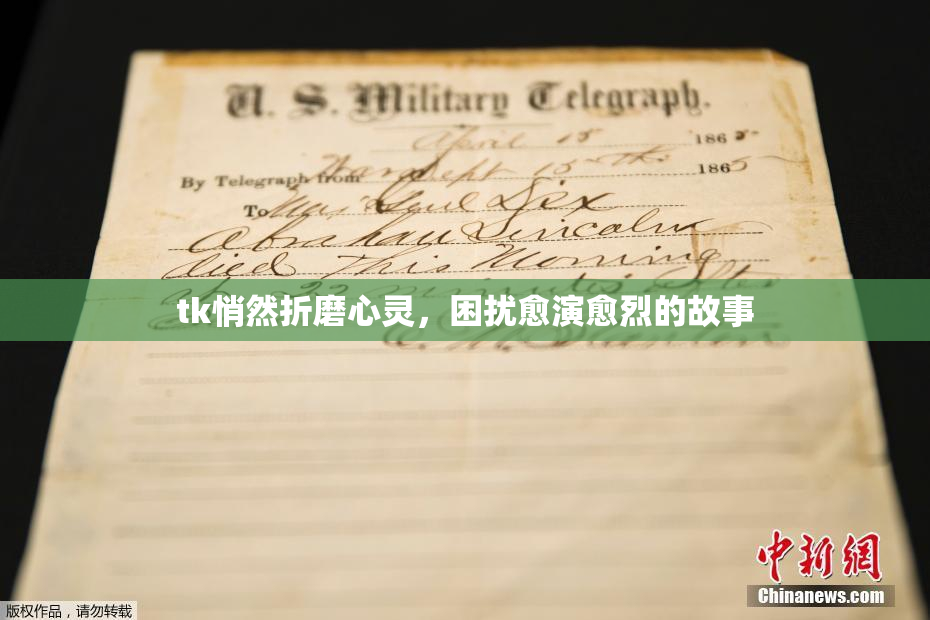 U. S. Military Telegraph.
April 15 1865
By Telegraph from War Dept 15th 1865
To Maj Genl Dix
Abraham Lincoln
died This Morning
22 minutes after
tk悄然折磨心灵，困扰愈演愈烈的故事
E. M. Stanton
中新网
Chinanews.com
版权作品，请勿转载